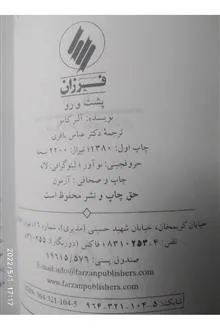 فرزان
پشت و رو
نویسنده: آلبر کامو
ترجمهٔ دکتر عباس باقری
چاپ اول: ۱۳۸۰؛ تیراژ: ۲۲۰۰ نسخه
حروفچینی: نوآور؛ لیتوگرافی: لاله
چاپ و صحافی: آزمون
حق چاپ و نشر محفوظ است
خیابان کریمخان، خیابان شهید حسینی (مدیری)،
تلفن: فاکس (دورنگار):
صندوق پستی: ۱۹۶۱۵/۵۷۶
E-mail: info@farzanpublishers.com
farzanpublishers.com
ISBN: 964-321-104-5 شابک: ۵-۱۰۴-۳۲۱-۹۶۴